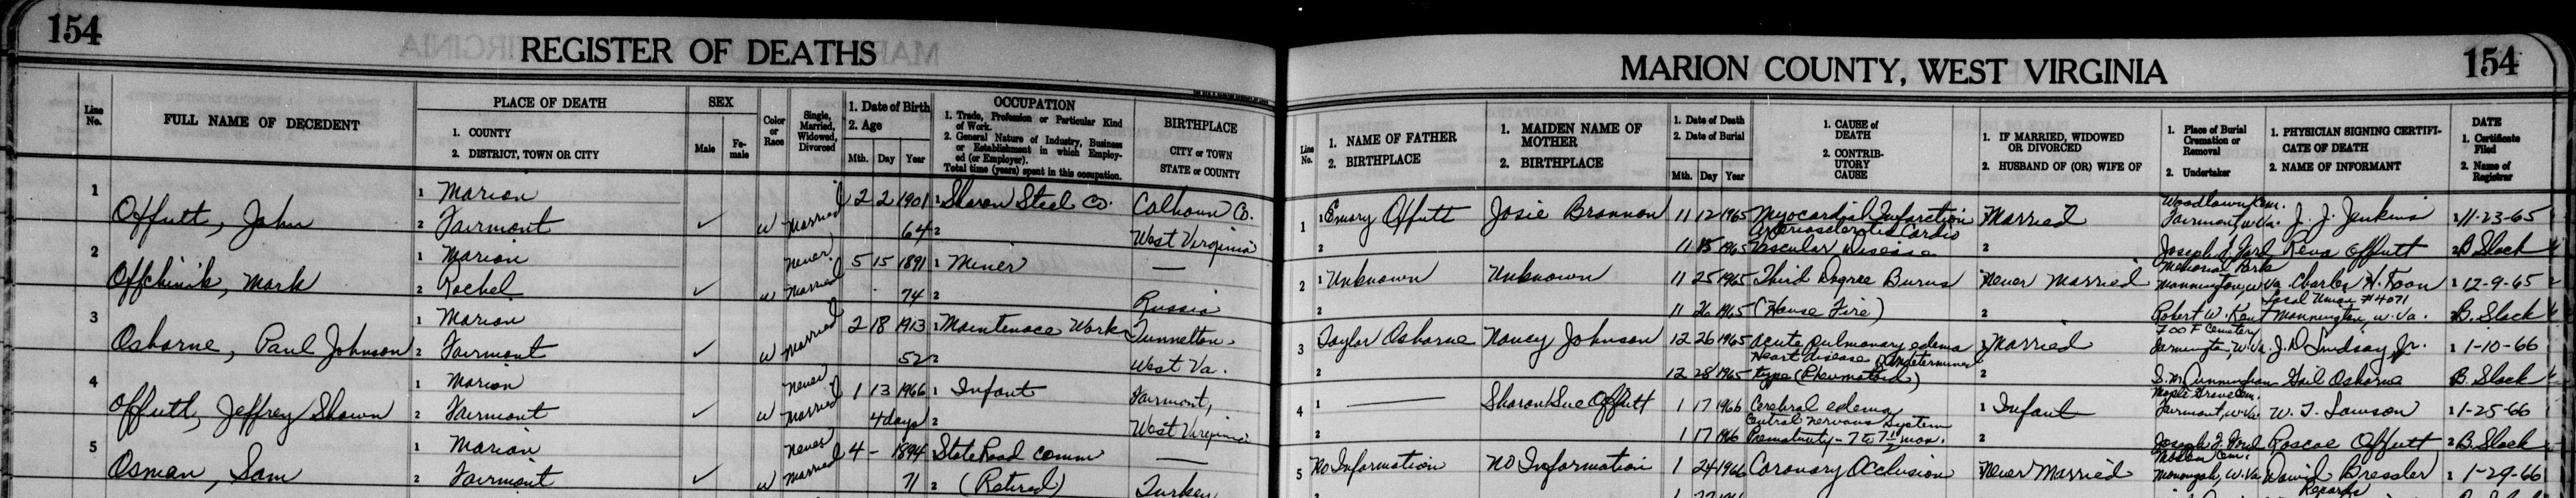 154
REGISTER OF DEATHS
MARION COUNTY, WEST VIRGINIA
154
Line No.
FULL NAME OF DECEDENT
PLACE OF DEATH
1. COUNTY
2. DISTRICT, TOWN OR CITY
SEX
Male
Female
Color or Race
Single, Married, Widowed, Divorced
1. Date of Birth
2. Age
Mth. Day Year
OCCUPATION
1. Trade, Profession or Particular Kind of Work.
2. General Nature of Industry, Business or Establishment in which Employed (or Employer).
Total time (years) spent in this occupation.
BIRTHPLACE
CITY or TOWN
STATE or COUNTY
Line No.
1. NAME OF FATHER
2. BIRTHPLACE
1. MAIDEN NAME OF MOTHER
2. BIRTHPLACE
1. Date of Death
2. Date of Burial
Mth. Day Year
1. CAUSE of DEATH
2. CONTRIBUTORY CAUSE
1. IF MARRIED, WIDOWED OR DIVORCED
2. HUSBAND OF (OR) WIFE OF
1. Place of Burial Cremation or Removal
2. Undertaker
1. PHYSICIAN SIGNING CERTIFICATE OF DEATH
2. NAME OF INFORMANT
DATE
1. Certificate Filed
2. Name of Registrar
1 Offutt, John 1 Marion 2 Fairmont ✓ W Married 2 2 1901 64 1 Sharon Steel Co. 2 Calhoun Co. West Virginia
1 1 Emory Offutt Josie Brannon 11 12 1965 Myocardial Infarction Married Woodlawn Cem. Fairmont, W.Va. J. J. Jenkins 1 11-23-65
2 11 15 1965 Arteriosclerotic Cardio Vascular Disease 2 Joseph F. Ford Reva Offutt 2 B. Slack
2 Offchinik, Mark 1 Marion 2 Rachel ✓ W Never Married 5 15 1891 74 1 Miner 2 — Russia
2 1 Unknown Unknown 11 25 1965 Third Degree Burns Never Married Memorial Park Mannington, W.Va. Charles H. Toon 1 12-9-65
2 11 26 1965 (House Fire) 2 Robert W. Kent Local Union #4071 Mannington, W.Va. 2 B. Slack
3 Osborne, Paul Johnson 1 Marion 2 Fairmont ✓ W Married 2 18 1913 52 1 Maintenace Work 2 Tunnelton, West Va.
3 Taylor Osborne Nancy Johnson 12 26 1965 Acute Pulmonary edema 1 Married I O O F Cemetery Farmington, W.Va. J. D. Lindsay, Jr. 1 1-10-66
2 12 28 1965 Heart disease Undetermined type (Rheumatoid) 2 Cunningham Gail Osborne B. Slack
4 Offutt, Jeffrey Shawn 1 Marion 2 Fairmont ✓ W Never Married 1 13 1966 4 days 1 Infant 2 Fairmont, West Virginia
4 1 — Sharon Sue Offutt 1 17 1966 Cerebral edema 1 Infant Maple Grove Cem. Fairmont, W.Va. W. T. Lawson 1 1-25-66
2 1 17 1966 Central Nervous System Prematurity - 7 to 7 1/2 mon. 2 Joseph F. Ford Roscoe Offutt 2 B. Slack
5 Osman, Sam 1 Marion 2 Fairmont ✓ W Never Married 4 - 1894 71 State Road Comm 2 (Retired) — Turkey
5 No Information No Information 1 24 1966 Coronary Occlusion Never Married Cem. Monongah, W.Va. David Bressler 1 1-29-66
Records